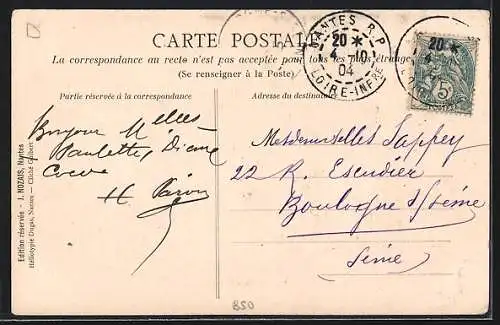 CARTE POSTALE
La correspondance au recto n'est pas acceptée pour tous les pays étrangers
(Se renseigner à la Poste)
Partie réservée à la correspondance
Adresse du destinataire
NANTES R.P.
20 *
4 -10
04
LOIRE-INFRE
20 *
5
Bonjour Melles
Paulette, Diane
H.
Mesdemoiselles Sappey
22 R. Escudier
Boulogne s/ Seine
Seine
Edition réservée - J. NOZAIS, Nantes
Héliotypie Dugas, Nantes - Cliché Gilbert
850